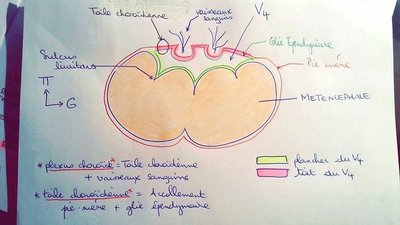 Toile choroïdienne
vaisseaux
sanguins
V4
Glie Ependymaire
Sulcus
limitans
Pie mère
G
METENCEPHALE
* plexus choroïde* = Toile choroïdienne
+ vaisseaux sanguins
* toile choroïdienne* = Accollement
pie-mère + glie épendymaire
plancher du V4
toit du V4